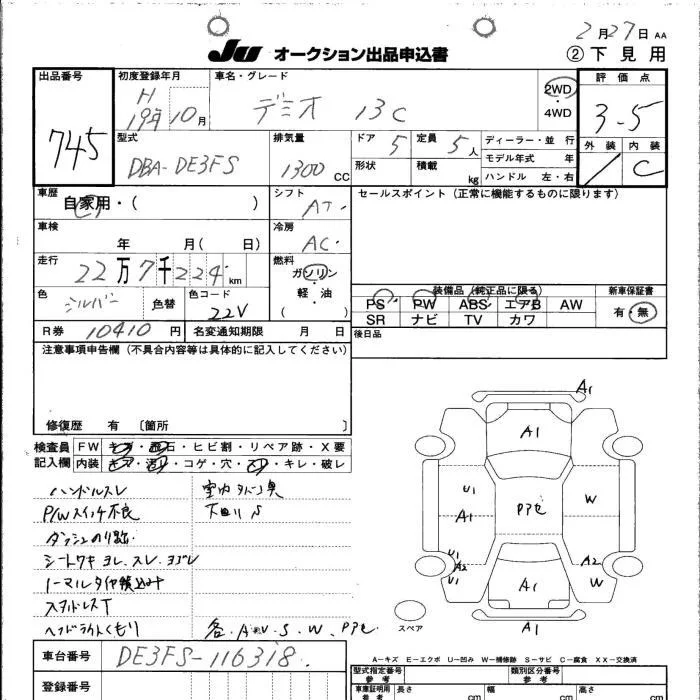 2月27日 AA
JU オークション出品申込書
② 下見用
出品番号 初度登録年月 車名・グレード 2WD・4WD 評価点
745 H19年10月 デミオ 13C 3.5
型式 排気量 ドア 5 定員 5人 ディーラー・並行
外装 内装
DBA-DE3FS 1300CC 形状 積載 kg モデル年式 年
ハンドル 左・右
C
車歴 自家用・( ) シフト AT セールスポイント (正常に機能するものに限ります)
車検 年 月( 日) 冷房 AC
走行 22万7千224km 燃料 ガソリン・軽油 ( )
色 シルバー 色替 色コード 22V
装備品 (純正品に限る) 新車保証書
PS PW ABS エアB AW 有・無
SR ナビ TV カワ
R券 10410円 名変通知期限 月 日 後日品
注意事項申告欄 (不具合内容等は具体的に記入してください)
修復歴 有 〔箇所 〕
検査員記入欄 FW キズ・飛石・ヒビ割・リペア跡・X要
内装 キズ・汚レ・コゲ・穴・・キレ・破レ
ハンドルスレ
P/Wスイッチ不良
シートワキ ヨレ、スレ、ヨゴレ
ノーマルタイヤ積込み
スタッドレスT
ヘッドライトくもり
各、A、U、S、W、Pアセ
A1
A1
U1
A1
Pアセ
W
U1
A2
U1
A1
A2
W
A1
スペア
A-キズ E-エクボ U-凹み W-補修跡 S-サビ C-腐食 XX-交換済
車台番号 DE3FS-116318
型式指定番号 参考 類別区分番号 参考
登録番号 車庫証明用 参考 長さ cm 幅 cm 高さ cm